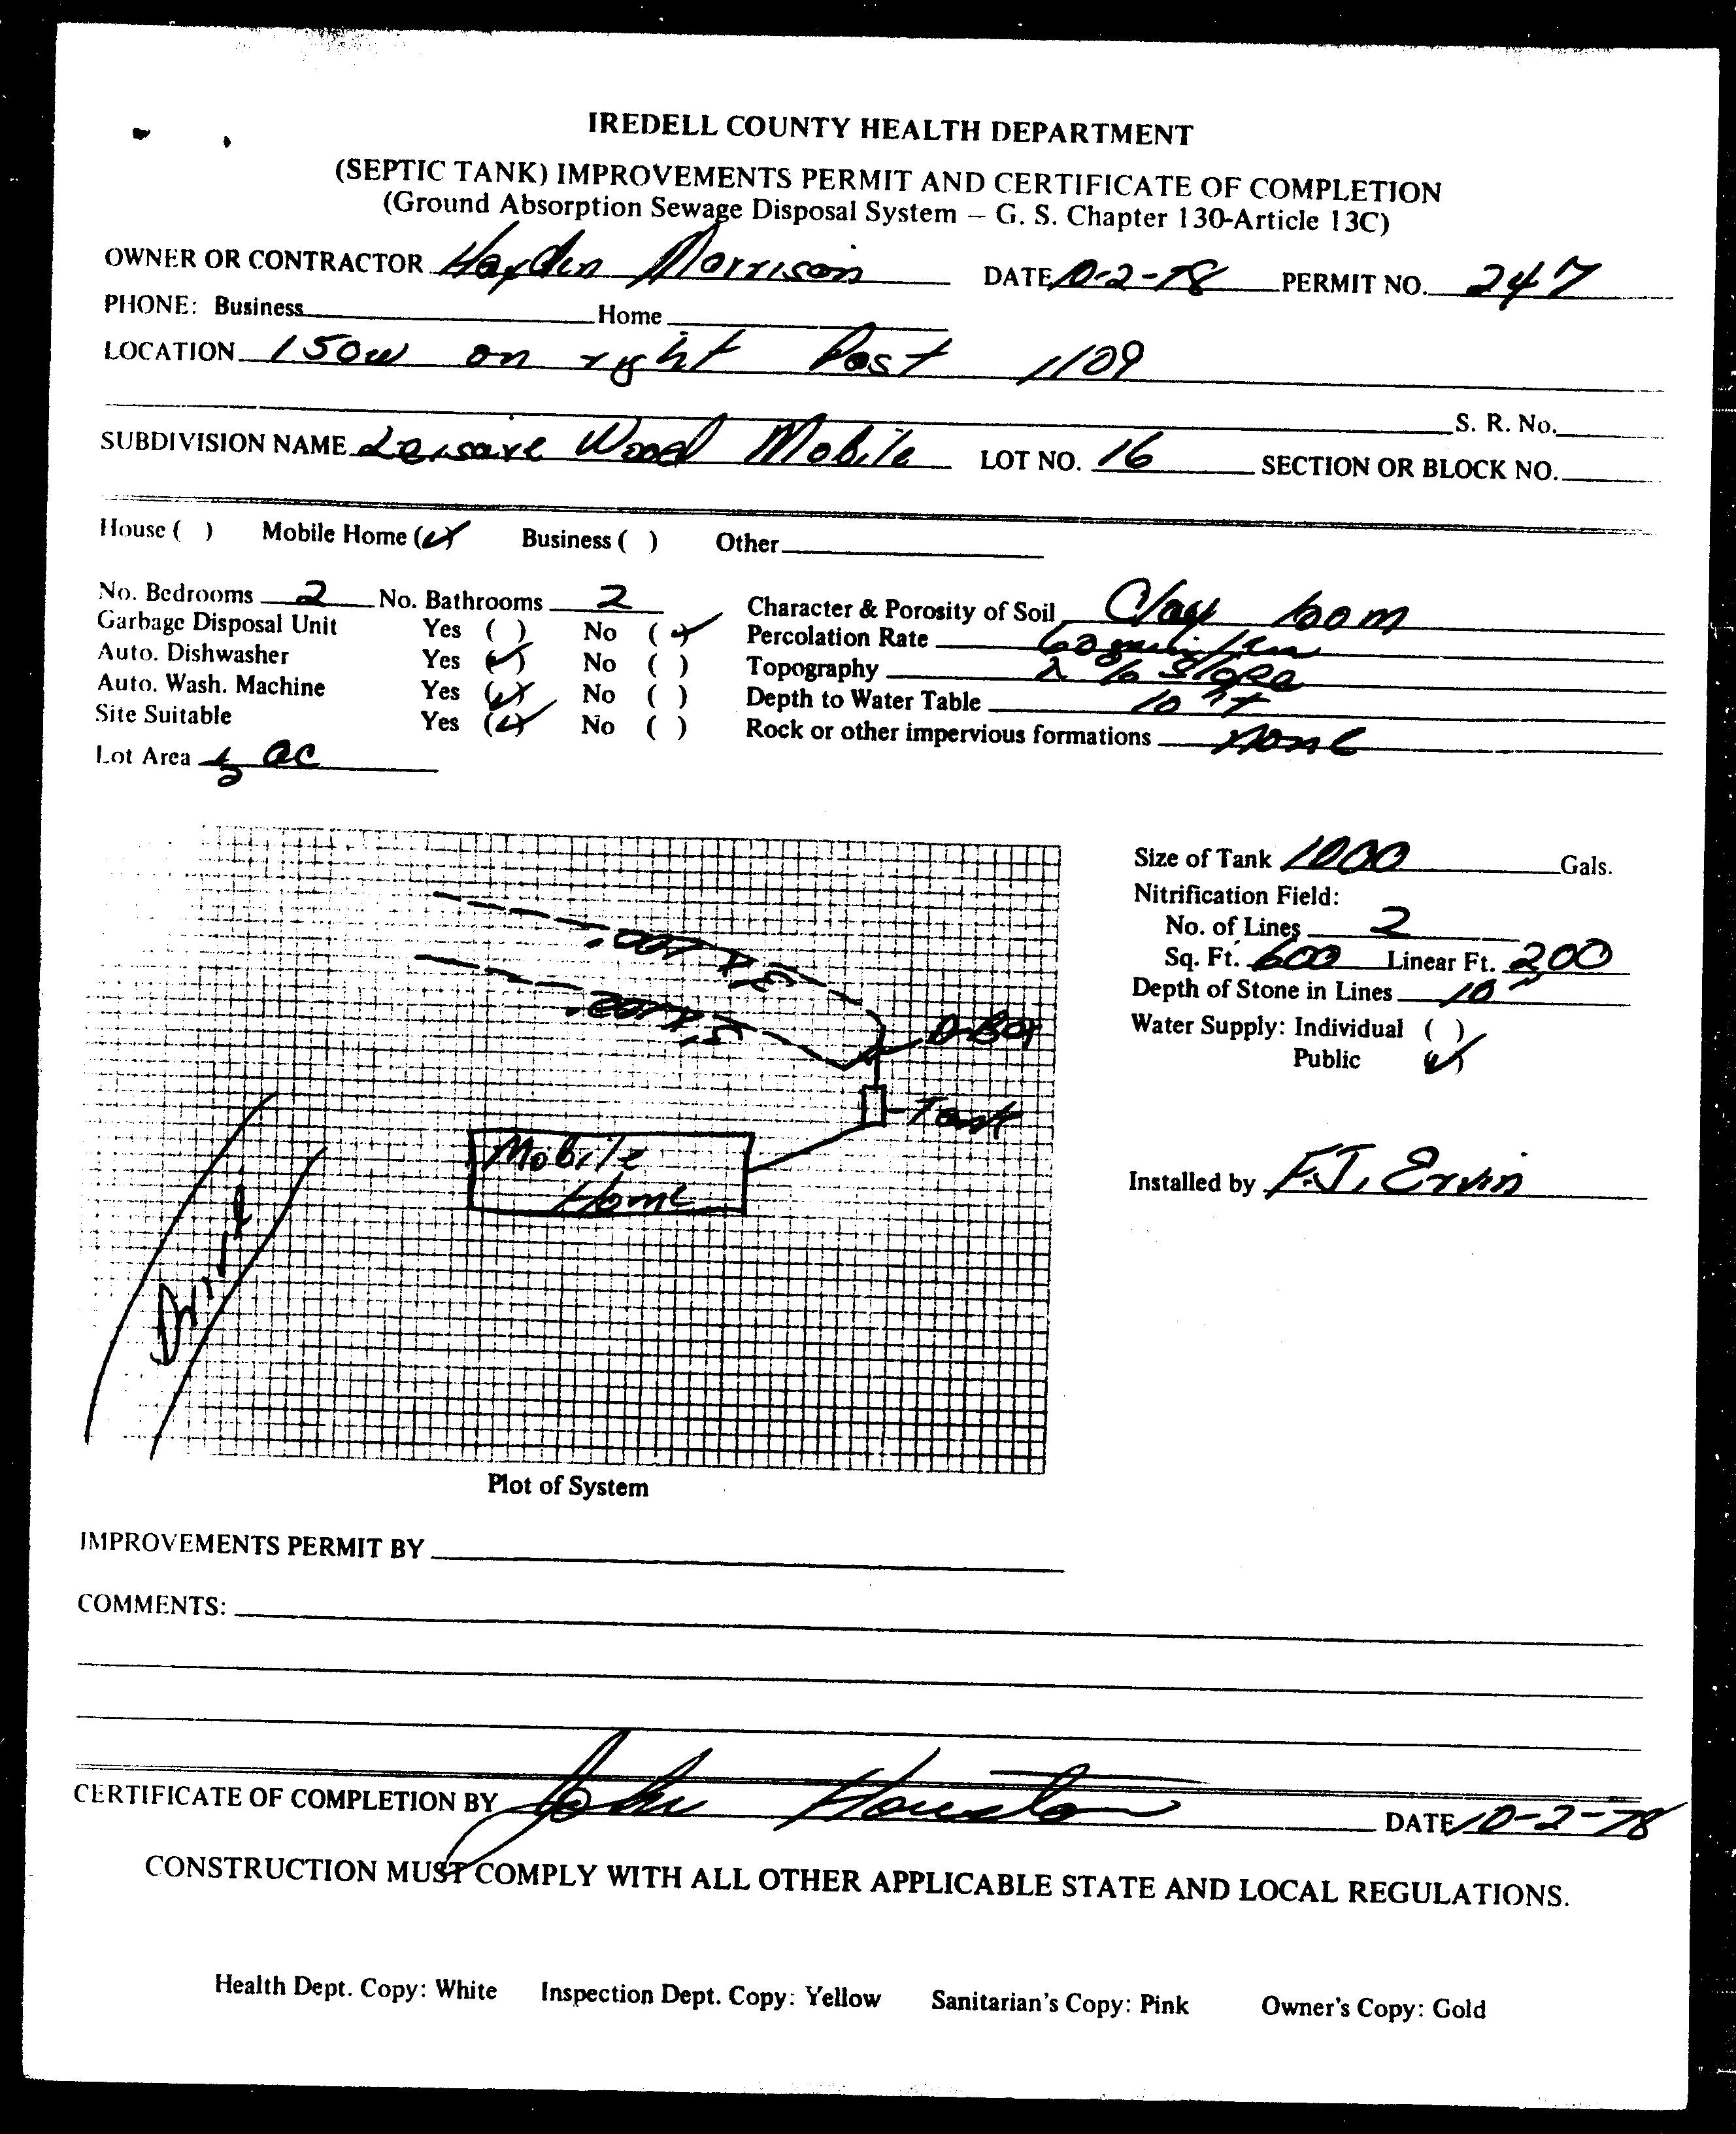 IREDELL COUNTY HEALTH DEPARTMENT
(SEPTIC TANK) IMPROVEMENTS PERMIT AND CERTIFICATE OF COMPLETION
(Ground Absorption Sewage Disposal System – G. S. Chapter 130-Article 13C)
OWNER OR CONTRACTOR Hayden Morrison DATE 10-2-78 PERMIT NO. 247
PHONE: Business Home
LOCATION 150W on right Past 1109
S. R. No.
SUBDIVISION NAME Leisure Wood Mobile LOT NO. 16 SECTION OR BLOCK NO.
House ( ) Mobile Home (✓) Business ( ) Other
No. Bedrooms 2 No. Bathrooms 2 Character & Porosity of Soil Clay loom
Garbage Disposal Unit Yes ( ) No (✓) Percolation Rate 60
Auto. Dishwasher Yes (✓) No ( ) Topography 2 % Slope
Auto. Wash. Machine Yes (✓) No ( ) Depth to Water Table 10 ft
Site Suitable Yes (✓) No ( ) Rock or other impervious formations None
Lot Area ½ ac
Size of Tank 1000 Gals.
Nitrification Field:
No. of Lines 2
Sq. Ft. 600 Linear Ft. 200
Depth of Stone in Lines 10"
Water Supply: Individual ( )
Public (✓)
Installed by F.J. Ervin
3' x 100'
3' x 100'
D-Box
Tank
Mobile
Home
Drive
Plot of System
IMPROVEMENTS PERMIT BY
COMMENTS:
CERTIFICATE OF COMPLETION BY John Houston DATE 10-2-78
CONSTRUCTION MUST COMPLY WITH ALL OTHER APPLICABLE STATE AND LOCAL REGULATIONS.
Health Dept. Copy: White Inspection Dept. Copy: Yellow Sanitarian's Copy: Pink Owner's Copy: Gold